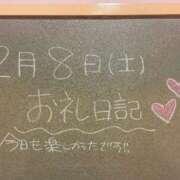 2月8日(土)
お礼日記
今日も楽しかったです!!